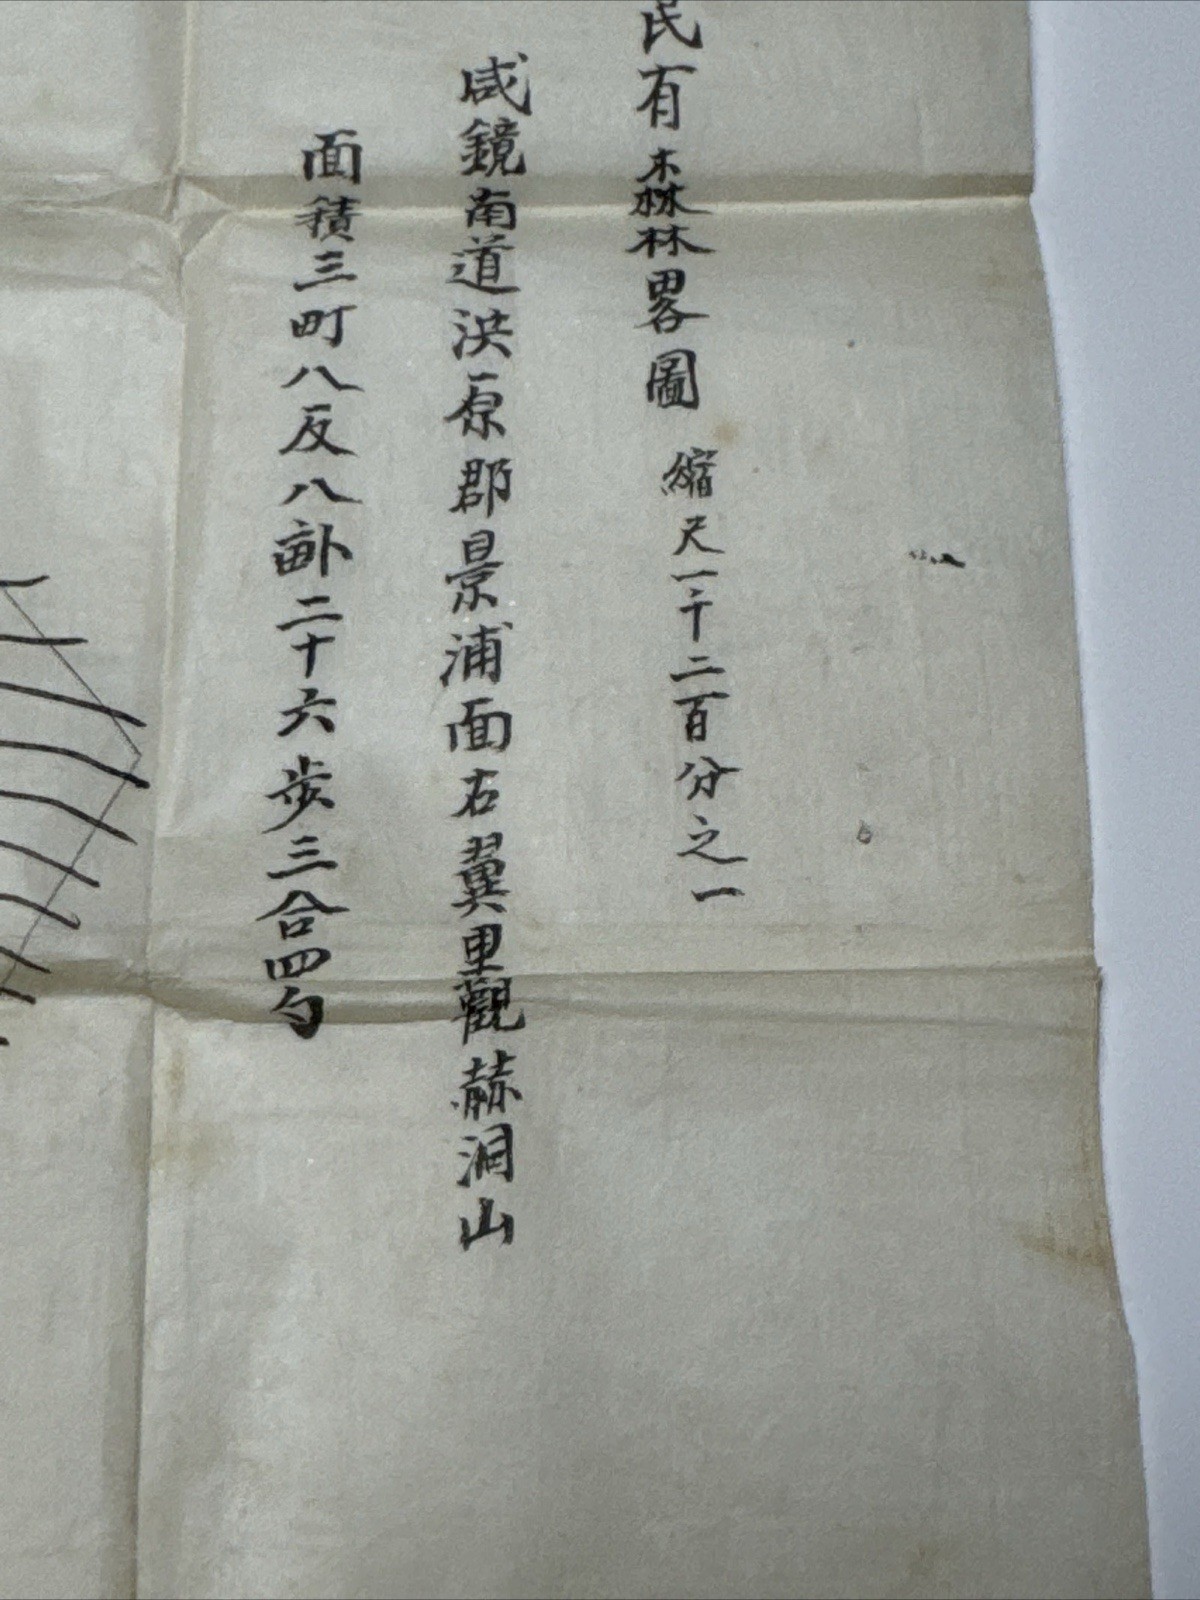 民有森林畧圖 縮尺一千二百分之一
咸鏡南道洪原郡景浦面右翼里觀赫洞山
面積三町八反八畝二十六步三合四勺